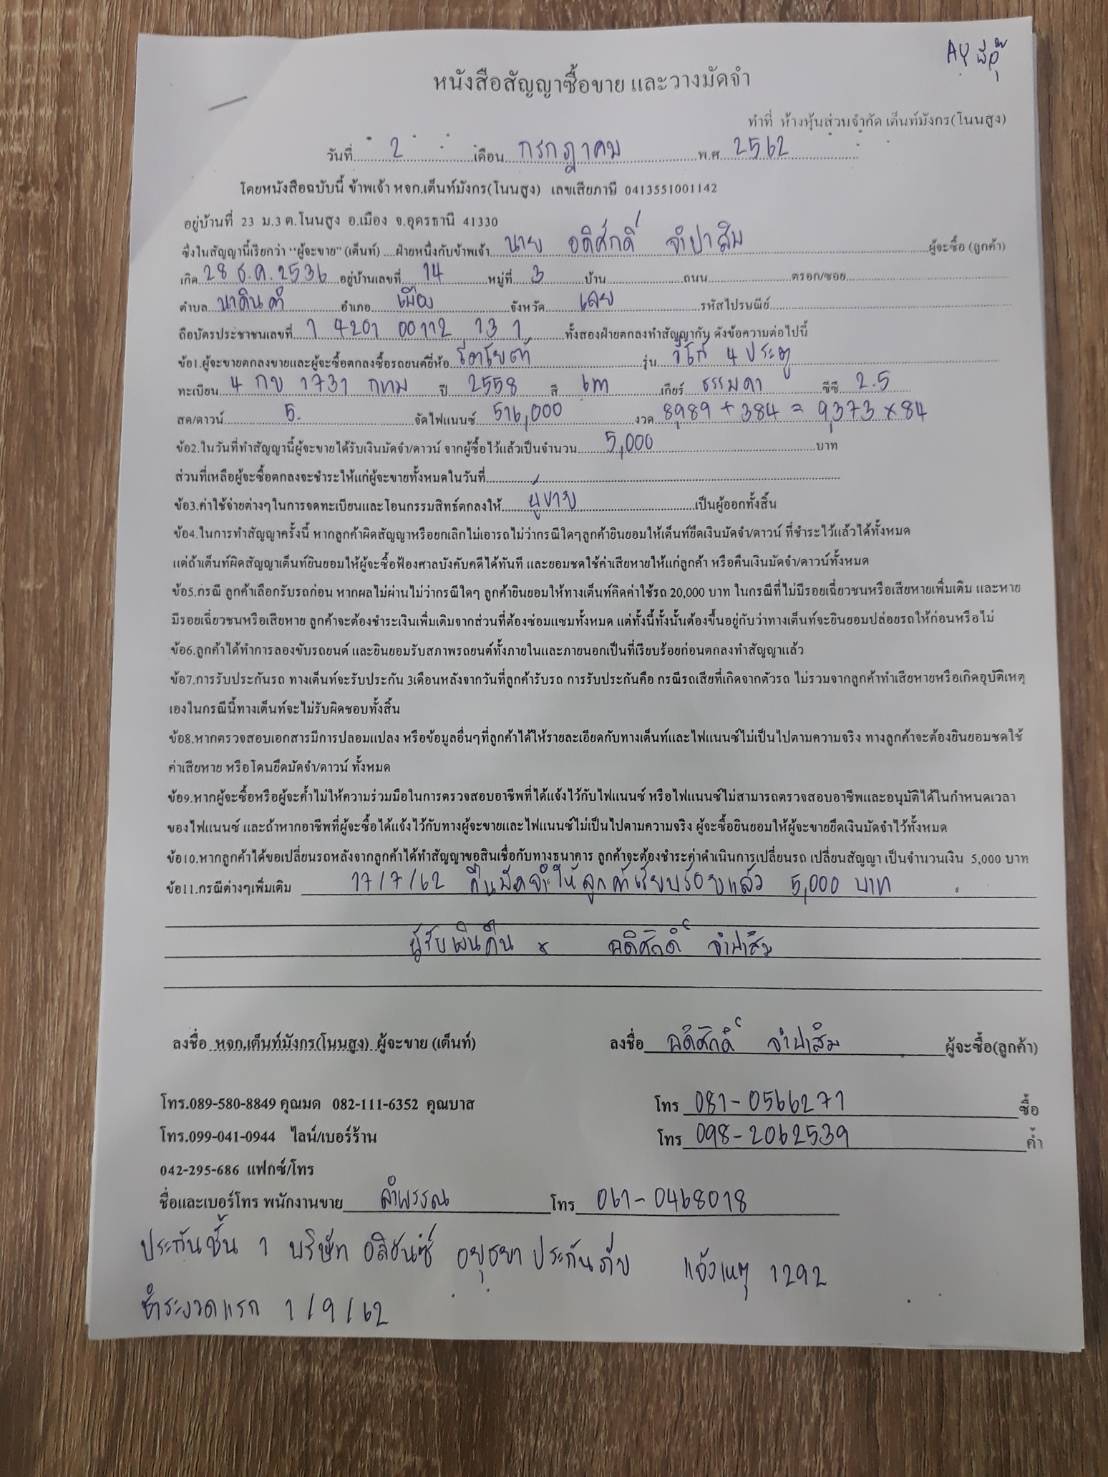 AY
หนังสือสัญญาซื้อขาย และวางมัดจำ
ทำที่ ห้างหุ้นส่วนจำกัด เต็นท์มังกร(โนนสูง)
วันที่ 2 เดือน กรกฎาคม พ.ศ 2562
โดยหนังสือฉบับนี้ ข้าพเจ้า หจก.เต็นท์มังกร(โนนสูง) เลขเสียภาษี 0413551001142
อยู่บ้านที่ 23 ม.3 ต.โนนสูง อ.เมือง จ.อุดรธานี 41330
ซึ่งในสัญญานี้เรียกว่า "ผู้จะขาย" (เต็นท์) ....ฝ่ายหนึ่งกับข้าพเจ้า นาย อดิศักดิ์ จำปาสิม ผู้จะซื้อ (ลูกค้า)
เกิด 28 ธ.ค.2536 อยู่บ้านเลขที่ 14 หมู่ที่ 3 บ้าน ถนน ตรอก/ซอย
ตำบล นาดินดำ อำเภอ เมือง จังหวัด เลย รหัสไปรษณีย์
ถือบัตรประชาชนเลขที่ 1 4201 00112 13 1 ทั้งสองฝ่ายตกลงทำสัญญากัน ดังข้อความต่อไปนี้
ข้อ1.ผู้จะขายตกลงขายและผู้จะซื้อตกลงซื้อรถยนต์ยี่ห้อ โตโยต้า รุ่น วีโก้ 4 ประตู
ทะเบียน 4 กข 1731 กทม ปี 2558 สี เทา เกียร์ ธรรมดา ซีซี 2.5
สด/ดาวน์ 5. จัดไฟแนนซ์ 516,000 งวด 8989 + 384 = 9,373 x 84
ข้อ2.ในวันที่ทำสัญญานี้ผู้จะขายได้รับเงินมัดจำ/ดาวน์ จากผู้ซื้อไว้แล้วเป็นจำนวน 5,000 บาท
ส่วนที่เหลือผู้จะซื้อตกลงจะชำระให้แก่ผู้จะขายทั้งหมดในวันที่
ข้อ3.ค่าใช้จ่ายต่างๆในการจดทะเบียนและโอนกรรมสิทธ์ตกลงให้ ผู้ขาย เป็นผู้ออกทั้งสิ้น
ข้อ4.ในการทำสัญญาครั้งนี้ หากลูกค้าผิดสัญญาหรือยกเลิกไม่เอารถไม่ว่ากรณีใดๆลูกค้ายินยอมให้เต็นท์ยึดเงินมัดจำ/ดาวน์ ที่ชำระไว้แล้วได้ทั้งหมด
แต่ถ้าเต็นท์ผิดสัญญาเต็นท์ยินยอมให้ผู้จะซื้อฟ้องศาลบังคับคดีได้ทันที และยอมชดใช้ค่าเสียหายให้แก่ลูกค้า หรือคืนเงินมัดจำ/ดาวน์ทั้งหมด
ข้อ5.กรณี ลูกค้าเลือกรับรถก่อน หากผลไม่ผ่านไม่ว่ากรณีใดๆ ลูกค้ายินยอมให้ทางเต็นท์คิดค่าใช้รถ 20,000 บาท ในกรณีที่ไม่มีรอยเฉี่ยวชนหรือเสียหายเพิ่มเติม และหาย
มีรอยเฉี่ยวชนหรือเสียหาย ลูกค้าจะต้องชำระเงินเพิ่มเติมจากส่วนที่ต้องซ่อมแซมทั้งหมด แต่ทั้งนี้ทั้งนั้นต้องขึ้นอยู่กับว่าทางเต็นท์จะยินยอมปล่อยรถให้ก่อนหรือไม่
ข้อ6.ลูกค้าได้ทำการลองขับรถยนต์ และยินยอมรับสภาพรถยนต์ทั้งภายในและภายนอกเป็นที่เรียบร้อยก่อนตกลงทำสัญญาแล้ว
ข้อ7.การรับประกันรถ ทางเต็นท์จะรับประกัน 3เดือนหลังจากวันที่ลูกค้ารับรถ การรับประกันคือ กรณีรถเสียที่เกิดจากตัวรถ ไม่รวมจากลูกค้าทำเสียหายหรือเกิดอุบัติเหตุ
เองในกรณีนี้ทางเต็นท์จะไม่รับผิดชอบทั้งสิ้น
ข้อ8.หากตรวจสอบเอกสารมีการปลอมแปลง หรือข้อมูลอื่นๆที่ลูกค้าได้ให้รายละเอียดกับทางเต็นท์และไฟแนนซ์ไม่เป็นไปตามความจริง ทางลูกค้าจะต้องยินยอมชดใช้
ค่าเสียหาย หรือโดนยึดมัดจำ/ดาวน์ ทั้งหมด
ข้อ9.หากผู้จะซื้อหรือผู้จะค้ำไม่ให้ความร่วมมือในการตรวจสอบอาชีพที่ได้แจ้งไว้กับไฟแนนซ์ หรือไฟแนนซ์ไม่สามารถตรวจสอบอาชีพและอนุมัติได้ในกำหนดเวลา
ของไฟแนนซ์ และถ้าหากอาชีพที่ผู้จะซื้อได้แจ้งไว้กับทางผู้จะขายและไฟแนนซ์ไม่เป็นไปตามความจริง ผู้จะซื้อยินยอมให้ผู้จะขายยึดเงินมัดจำไว้ทั้งหมด
ข้อ10.หากลูกค้าได้ขอเปลี่ยนรถหลังจากลูกค้าได้ทำสัญญาขอสินเชื่อกับทางธนาคาร ลูกค้าจะต้องชำระค่าดำเนินการเปลี่ยนรถ เปลี่ยนสัญญา เป็นจำนวนเงิน 5,000 บาท
ข้อ11.กรณีต่างๆเพิ่มเติม 17/7/62 คืนมัดจำให้ลูกค้าเรียบร้อยแล้ว 5,000 บาท
ผู้รับเงินคืน x อดิศักดิ์ จำปาสิม
ลงชื่อ หจก.เต็นท์มังกร(โนนสูง) ผู้จะขาย (เต็นท์) ลงชื่อ อดิศักดิ์ จำปาสิม ผู้จะซื้อ(ลูกค้า)
โทร.089-580-8849 คุณมด 082-111-6352 คุณบาส โทร 081-0566271 ซื้อ
โทร.099-041-0944 ไลน์/เบอร์ร้าน โทร 098-2062539 ค้ำ
042-295-686 แฟกซ์/โทร
ชื่อและเบอร์โทร พนักงานขาย ลำพรรณ โทร 061-0468018
ประกันชั้น 1 บริษัท อลิอันซ์ อยุธยา ประกันภัย แจ้งเหตุ 1292
ชำระงวดแรก 1/9/62